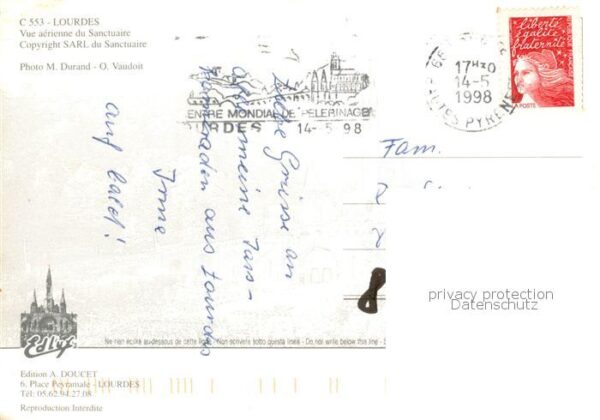 C 553 - LOURDES
Vue aérienne du Sanctuaire
Copyright SARL du Sanctuaire
Photo M. Durand - O. Vaudoit
liberté
égalité
fraternité
LA POSTE
17H30
14-5
1998
PYRENE
CENTRE MONDIAL DE PELERINAGE
LOURDES 14-5 98
Liebe Grüsse an
alle meine Tanz-
kameraden aus Lourdes
Irma
auf bald!
Fam.
8
privacy protection
Datenschutz
Edlys
Ne rien écrire au-dessous de cette ligne - Non scrivere sotto questa linea - Do not write below this line -
Edition A. DOUCET
6, Place Peyramale - LOURDES
Tél: 05.62.94.27.08
Reproduction Interdite